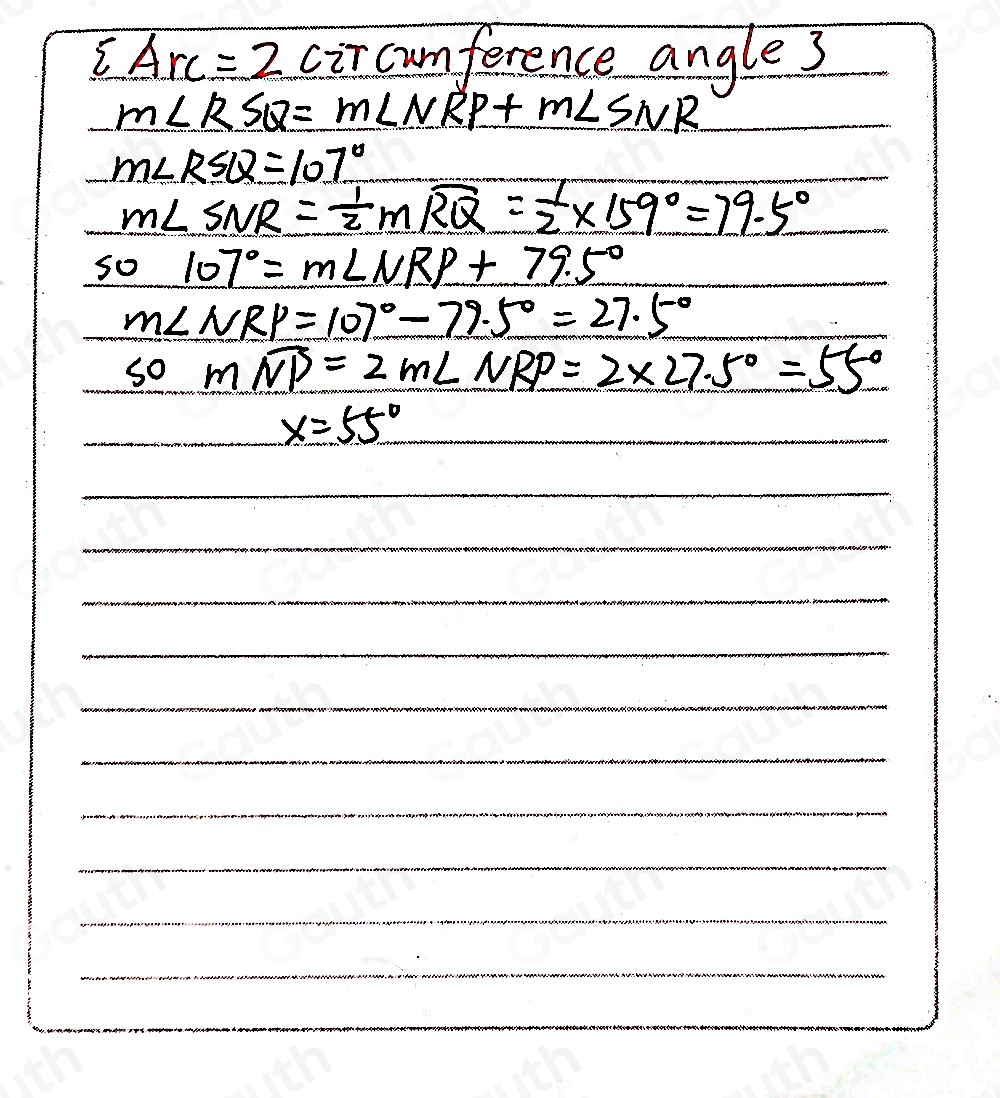 { Arc = 2 circumference angle }
m∠RSQ = m∠NRP + m∠SNR
m∠RSQ = 107°
m∠SNR = 1/2 m⌒RQ = 1/2 × 159° = 79.5°
so 107° = m∠NRP + 79.5°
m∠NRP = 107° - 79.5° = 27.5°
so m⌒NP = 2 m∠NRP = 2 × 27.5° = 55°
x = 55°